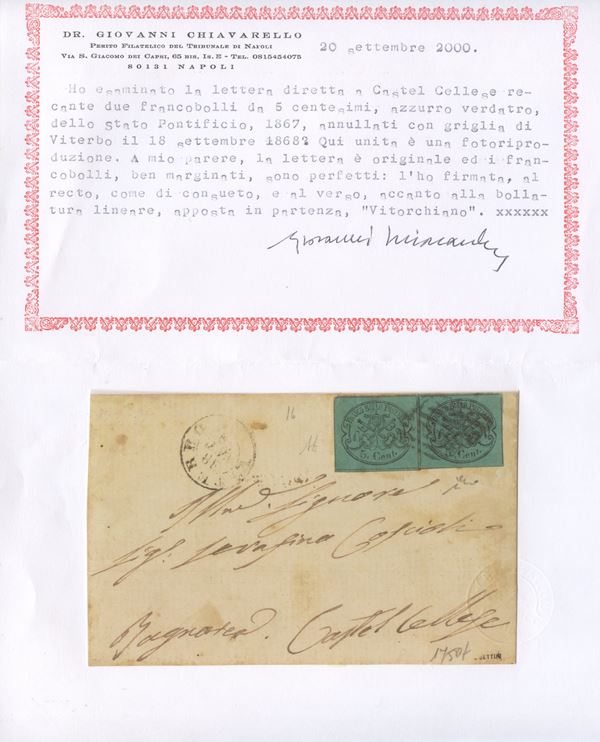 DR. GIOVANNI CHIAVARELLO
PERITO FILATELICO DEL TRIBUNALE DI NAPOLI
VIA S. GIACOMO DEI CAPRI, 65 BIS, IS. E - TEL. 0815454075
80131 NAPOLI
20 settembre 2000.
Ho esaminato la lettera diretta a Castel Cellese re-
cante due francobolli da 5 centesimi, azzurro verdatro,
dello Stato Pontificio, 1867, annullati con griglia di
Viterbo il 18 settembre 1868? Qui unita è una fotoripro-
duzione. A mio parere, la lettera è originale ed i fran-
cobolli, ben marginati, sono perfetti: l'ho firmata, al
recto, come di consueto, e al verso, accanto alla bolla-
tura lineare, apposta in partenza, "Vitorchiano". xxxxxx
Giovanni
16
16
5. Cent. 5. Cent.
Signore
Serafino
Bagnorea. Castel Cellese
1750